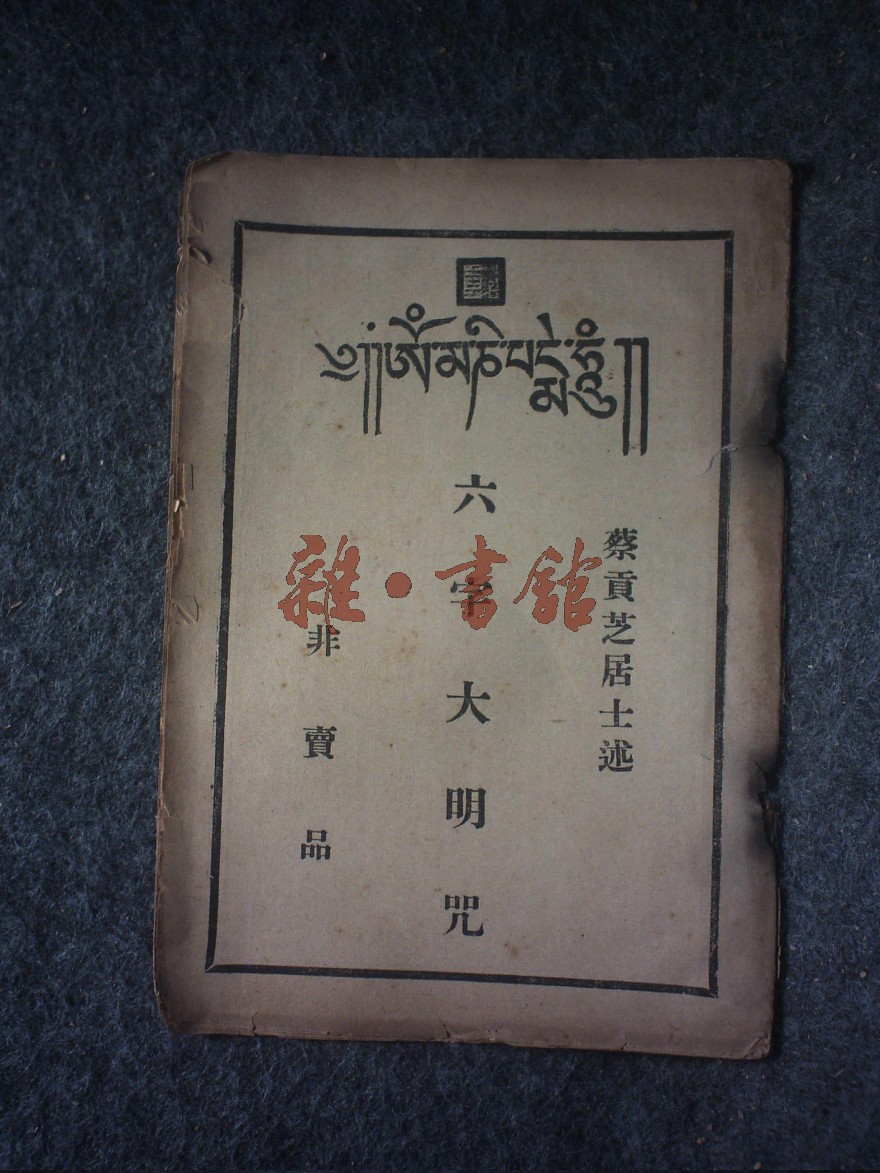 ༄༅།།ཨོཾ་མ་ཎི་པདྨེ་ཧཱུྃ།།
蔡貢芝居士述
六字大明咒
非賣品
雜·書館